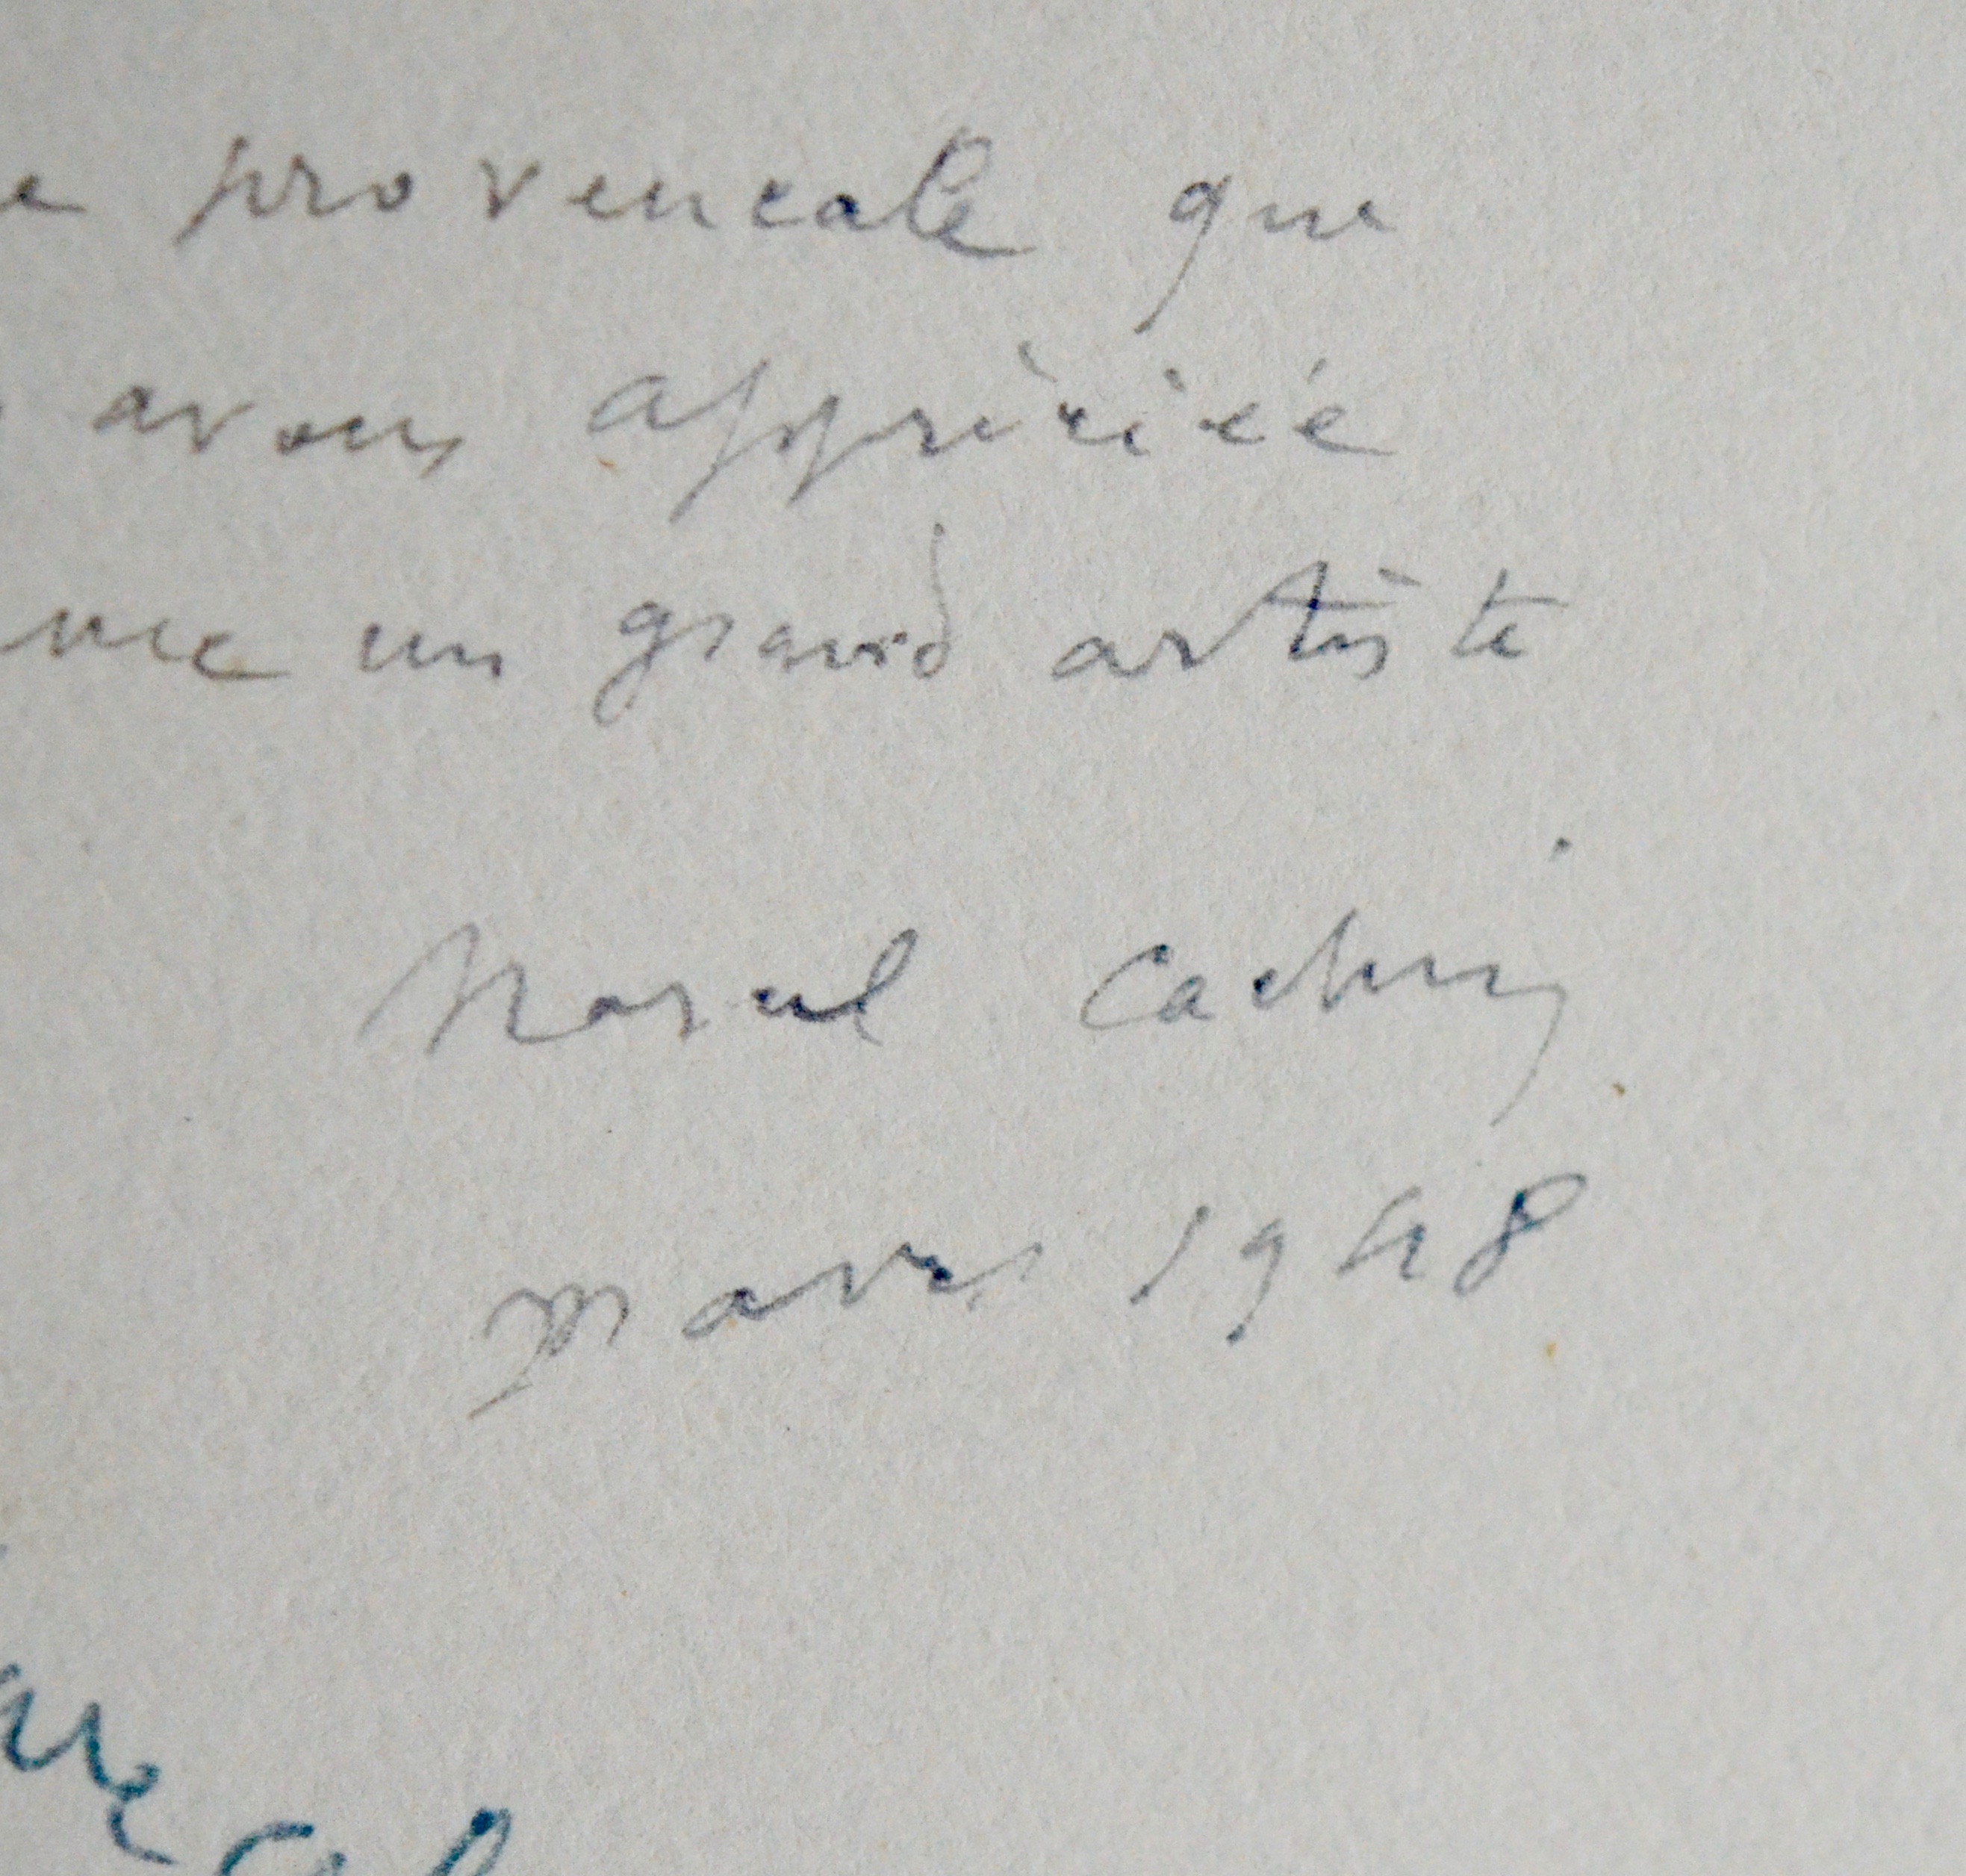 e provencale que
avons appréciée
avec un grand artiste
Marcel Cachin
Mars 1948